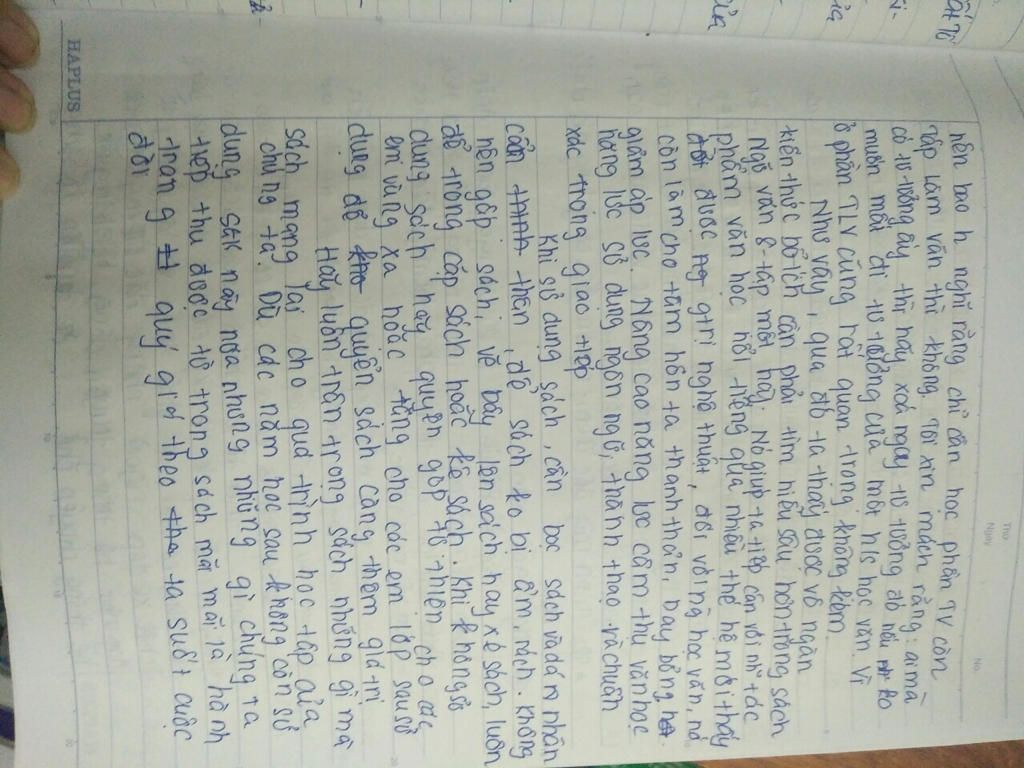 Thứ
Ngày
No.
nên bao h nghĩ rằng chỉ cần học phần TV còn
tập làm văn thì không. Tôi xin mách rằng: ai mà
có tư tưởng ấy thì hãy xoá ngay tư tưởng đó nếu ko
muốn mất đi tư tưởng của một h/s học văn vì
ở phần TLV cũng rất quan trọng không kém
Như vậy, qua đó ta thấy được vô ngàn
kiến thức bổ ích cần phải tìm hiểu sâu hơn trong sách
Ngữ văn 8 tập một này. Nó giúp ta tiếp cận với n~ tác
phẩm văn học nổi tiếng qua nhiều thế hệ mới thấy
được giá trị nghệ thuật, đối với ng học văn, nó
còn làm cho tâm hồn ta thanh thản, bay bổng
giảm áp lực. Nâng cao năng lực cảm thụ văn học
năng lực sử dụng ngôn ngữ, thành thạo và chuẩn
xác trong giao tiếp
Khi sử dụng sách, cần bọc sách và dán nhãn
cẩn thận, để sách ko bị ẩm, rách. Không
nên gập sách, vẽ bậy lên sách hay xé sách, luôn
để trong cặp sách hoặc kệ sách. Khi không sử
dụng sách hãy quyên góp từ thiện cho các
em vùng xa hoặc tặng cho các em lớp sau sử
dụng để quyển sách càng thêm giá trị
Hãy luôn trân trọng sách những gì mà
sách mang lại cho quá trình học tập của
chúng ta. Dù các năm học sau không còn sử
dụng SGK này nữa nhưng những gì chúng ta
tiếp thu được từ trong sách mãi mãi là hành
trang quý giá theo ta suốt cuộc
đời
HAPLUS
của